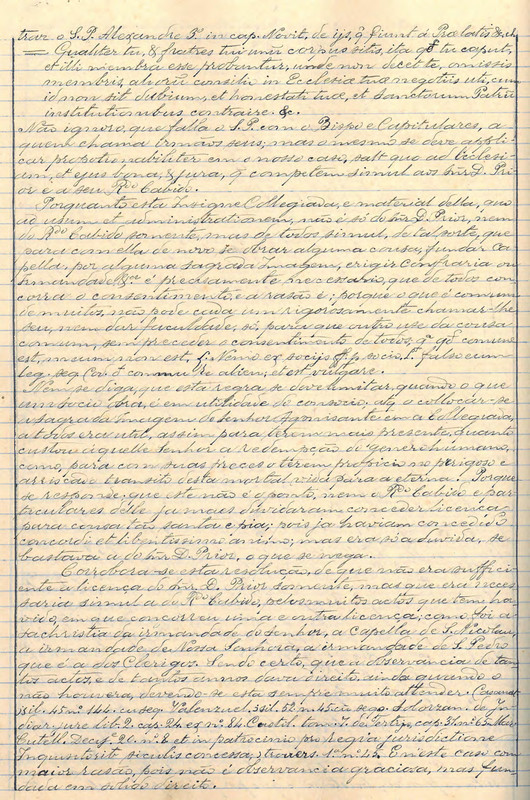 trav. o S. P. Alexandre 3º in cap. Novit, de ijs, q̃ fiunt á Prælatis &. ibi
= Qualiter tu, & fratres tui unũ corpus sitis, ita qđ tu caput,
et illi membra esse probantur, unde non decet te, omissis
membris, aliorũ consilio in Ecclesiæ tuæ negotiis uti, cum
id non sit dubium, et honestati tuæ, et Sanctorum Patrũ
institutionibus contraire. &c.
Não ignoro, que falla o S. P. com o Bispo e Capitulares, a
quem chama irmãos seus; mas o mesmo se deve appli-
car proportionabiliter em o nosso caso, salt. quo ad Ecclesi-
am, et ejus bona, & jura, q̃ competem simul aos Snr. D. Pri-
or e a seu Rdo Cabido.
Porquanto esta Insigne Collegiada, e material della, quo
ad usum et administrationem, não é só do Snr. D. Prior, nem
do Rdo Cabido somente, mas de todos simul, de tal sorte, que
para com ella de novo se obrar alguma cousa, fundar ca-
pella, por alguma sagrada Imagem, erigir Confraria ou
Irmandade &ra é precisamente necessario, que de todos con-
corra o consentimento, e a rasão é; porque o que é commum
de muitos, não pode cada um rigorosamente chamar-lhe
seu, nem dar faculdade, só, para que outro use da cousa
commum, sem preceder o consentimento de todos, qa qđ comune
est, meum non est, l. Nemo ex socijs ff. p. socio. l. falso eum
leg. seq. Cod. commu. Re alien. et est vulgare.
Nem se diga, que esta regra se deve limitar, quando o que
um socio obra, é em utilidade do consocio, atq. o collocar-se
a sagrada Imagem do Senhor Agonisante em a Collegiada,
a todos era util, assim para terem mais presente, quanto
custou áquelle Senhor a redempção do genero humano,
como, para com suas preces o terem propicio no perigoso e
arriscado transito desta mortal vida para a eterna! Porque
se responde; que este não é o ponto, nem o Rdo Cabido e par-
ticulares delle ja mais duvidaram conceder licença
para cousa tão santa e pia; pois ja haviam concedido
concordi et libentissimo animo; mas era sia duvida, se
bastava a do Snr. D. Prior, o que se nega.
Corrobora-se esta resolução, de que não era suffici-
ente a licença do Snr. D. Prior somente, mas que era neces-
saria simul a do Rdo Cabido, pelos muitos actos que tem ha-
vido, em que concorreu uma e outra licença; como foi a
sachristia da irmandade do Senhor, a Capella de S. Nicolau,
a irmandade de Nossa Senhora, a irmandade de S. Pedro
que é a dos Clerigos. Sendo certo, que a observancia de tan-
tos actos, e de tantos annos dava direito, ainda quando o
não houvera, devendo-se esta sempre muito attender.
maior rasão, pois não é observancia graciosa, mas fun-
dada em solido direito.